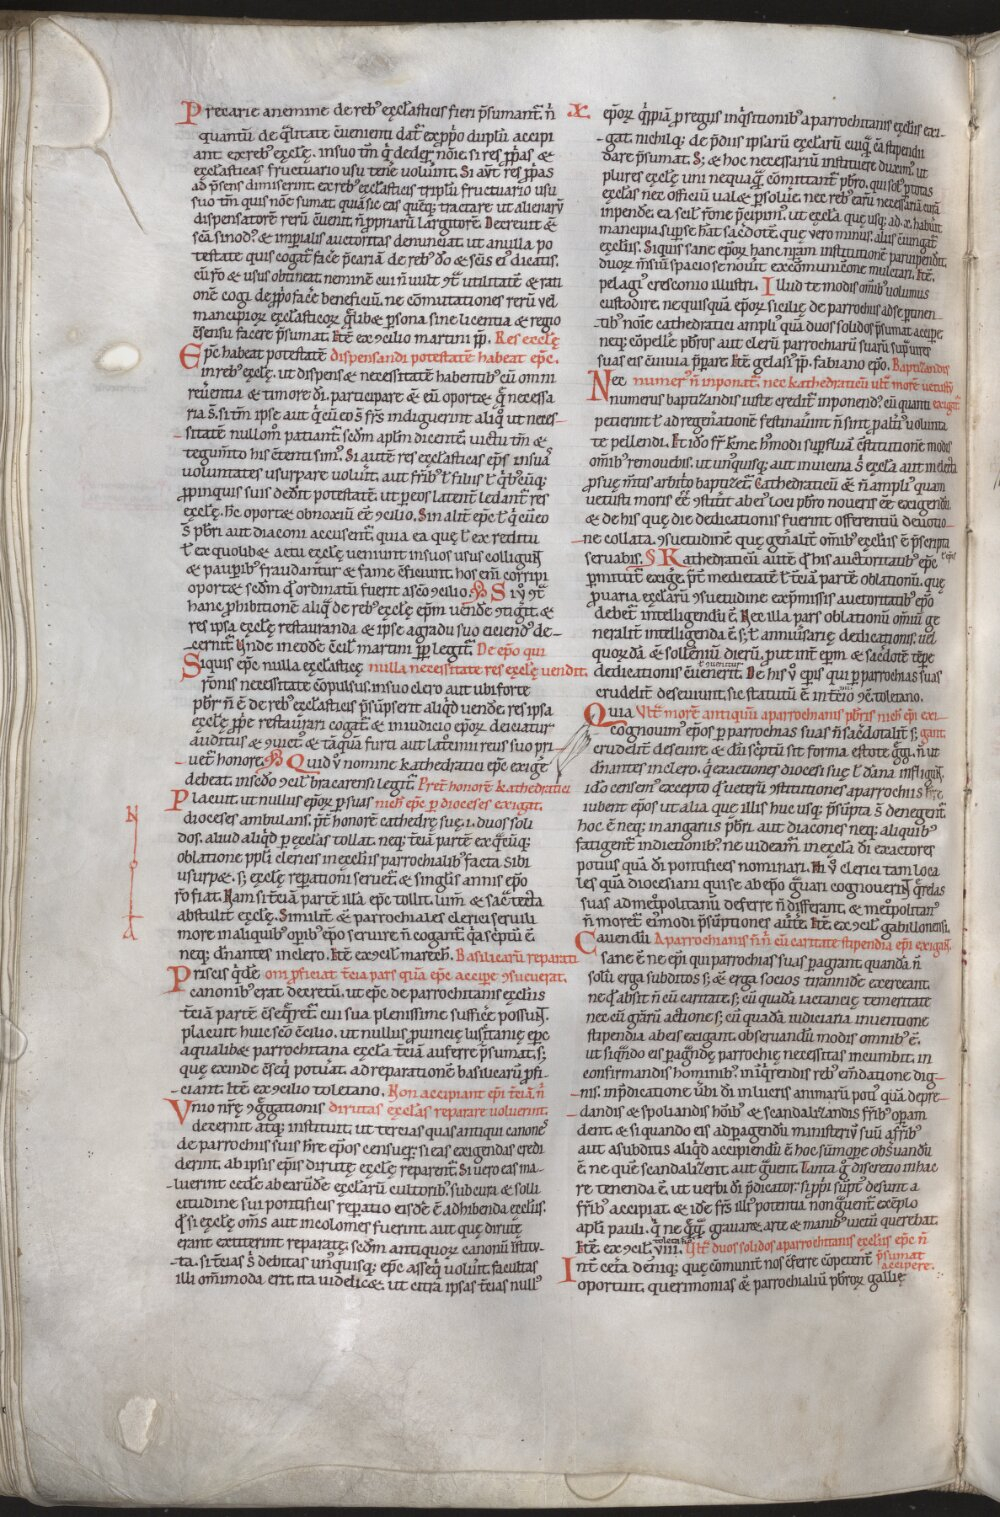 Precarie a nemine de reb' ęccl'asticis fieri p̄sumant̄. n̄
quantū de q̄litate c̄uenienti dat̄ ex ꝓp̄o duplū accipi
ant ex reb' ęccl'ę. in suo tm̄ q̇ deder̄ nōie. si res ꝓp̄as &
ęccl'asticas fructuario usu tenē uoluīnt. Si aut̄ res ꝓp̄as
ad p̄sens dimiserint. ex reb' ęccl'asticis triplū fructuario usu
suo tm̄ quis nōe sumat. quia sic eas q̄nq; tractare ut alienarū
dispensatorē rerū c̄uenit n̄ ꝓpriarū largitorē. Decreuit &
sc̄a sinod' & imp̄ialis auctoritas denunciat. ut a nulla po
testate quis cogat̄ facē p̄cariā de reb' dō & sc̄is ei' dicatis.
cū rō & usus obtineat. neminē cui n̄ uult ꝯt̄ utilitatē & rati
onē cogi de ꝓp̄o facē beneficiū. ne cōmutationes rerū uel
mancipiorꝝ ęccl'asticorꝝ q̄lib& p̄sona sine licentia & regio
c̄sensu facere p̄sumat. Itē ex ꝯcilio martini pp̄. Res eccl'ę
Ep̄c habeat potestatē dispensandi potestatē habeat ep̄c.
in reb' eccl'ę. ut dispens& necessitatē habentib' cū omni
reu̅entia & timore dī. participare & eū oport& q̄ necessa
ria s̄. si tm̄ ipse aut q̇ cū eo s̄ fr̄s indiguerint aliq̇ ut neces-
sitatē nullom̄ patiant̄ sed̄m ap̄lm dicentē. uictū tm̄ &
tegum̄to his c̄tenti sim'. Si autē res ęccl'asticas ep̄s in suas
uoluntates usurpare uolūit. aut fr̄ib' ł filiis ł q̇b'cūq;
ꝓpinquis suis dedit potestatē. ut p̄ eos latent̄ ledant̄ res
ęccl'ę. hc̄ oport& obnoxiū eē ꝯcilio. Sin alit̄ ep̄c ł q̇ cū eo
s̄ p̄bri aut diaconi accusent̄. quia ea quę ł ex reditu
ł ex quolib& actu ęccl'ę ueniunt in suos usus colligunt̄
& paup̄ib' fraudantur & fame c̄ficiunt. hos em̄ corripi
oport& sed̄m qđ ordinatū fuerit a sc̄o ꝯcilio. Si ū ꝯt̄
hanc ꝓhibitionē aliq̇d de reb' ęccl'ę ep̄m uendē ꝯtig̅it. &
res ipsa ęccl'ę restauranda & ipse a gradu suo eiciend' de-
cernit̄. Unde in eodē c̄cil' martini pp̄ legit̄. De ep̄o qui
Siquis ep̄c nulla ęccl'asticę nulla necessitate res eccl'ę uendit.
rōnis necessitate c̄pulsus. in suo clero aut ubi forte
p̄br n̄ ē de reb' ęccl'asticis p̄sūpserit aliq̇d uendē. res ipsa
ęccl'ę ꝓp̄e restaurari cogat̄. & in iudicio ep̄orꝝ deiciatur
auditus & ꝯuict' & tāquā furti aut latrocinii reus suo pri-
uet̄ honore. Quid ū nomine kathedratici ep̄c exigē
debeat. in sc̄do ꝯcil' bracarensi legit̄. Pret̄ honorē kathedratici
Placuit. ut nullus ep̄orꝝ p̄ suas nich' ep̄c p̄ dioceses exigat.
dioceses ambulans. p̄t̄ honorē cathedrę suę. i. duos soli
dos. aliud aliq̇d p̄ ęccl'as tollat. neq; t̄ciā partē ex q̄cūq;
oblatione pp̄li clericis in ęccl'iis parrochialib' facta sibi
usurp&. s; ęccl'ę rep̄ationi seruet̄. & singlis annis ep̄o
rō fiat. Nam si t̄ciā partē illā ep̄c tollit. lum̄ & sac̄ tecta
abstulit ęccl'ę. Similit̄ & parrochiales clerici seruili
more in aliquib' op̄ib' ep̄o seruire n̄ cogant̄. q̇a sc̄ptū ē.
neq; d̄nantes in clero. Itē ex ꝯcil' marech̄. Basilicarū reparati
Priscis q̇dē oni ꝓficiat t̄cia pars quā ep̄c accipe ꝯsueuerat.
canonib' erat decretū. ut ep̄c de parrochitanis ęccl'iis
t̄ciā partē c̄seq̅ret̄. cui sua plenissime sufficē possunt̄.
placuit huic sc̄o c̄cilio. ut nullus ꝓuincię lusītanię ep̄c
a qualib& parrochitana ęccl'a t̄ciā auferre p̄sumat. s;
quę exinde c̄seq̇ potūat. ad reparationē basilicarū ꝓfi-
ciant. Itē ex ꝯcilio toletano. Non accipiant ep̄i t̄ciā. n̄
Vnio nr̄ę ꝯg̅gationis dirutas ęccl'as reparare uoluerint.
decernit atq; instituit. ut tercias quas antiqui canones
de parrochis suis hr̄e ep̄os censuer̄. si eas exigendas credi
derint. ab ipsis ep̄is dirutę ęccl'ę reparent̄. Si uero eas ma-
luerint cedē ab earūdē ęccl'arū cultorib'. sub cura & solli
citudine sui pontificis rep̄atio eisdē ē adhibenda ęccl'iis.
qđ si ęccl'ę om̄s aut incolomes fuerint. aut quę dirutę
erant extiterint reparatę. sed̄m antiquorꝝ canonū īstitu-
ta. si t̄cias s̄ debitas un'quisq; ep̄c asseq̇ uolūit. facultas
illi omnimoda erit. ita uidelic&. ut citra ipsas t̄cias null'
X
ep̄orꝝ q̇ppiā p̄ regiis inq̇sitionib' a parrochitanis ęccl'iis exi-
gat. nichilq; de p̄diis ipsarū ęccl'arū cuiq̄ cā stipendii
dare p̄sumat. S; & hoc necessariū instituere duxim'. ut
plures ęccl'ę uni nequaq̄ cōmittant̄ p̄bro. qui sol' p̄ totas
ęccl'as nec officiū ual& p̄soluē. nec reb' earū necessariā curā
inpendē. ea scil' rōne p̄cipim'. ut ęccl'a quę usq; ad .x. habuīt
mancipia. sup̄ se h̄at sacdotē. quę uero minus. aliis c̄iungat̄
ęccl'iis. Siquis sane ep̄orꝝ hanc nr̄am institutionē paruipendit.
duorꝝ m̄siū spacio se nouīt excōmunicōne multari. Itē.
pelagi' cresconio illustri. Illud te modis om̄ib' uolumus
custodire. ne quisquā ep̄orꝝ sicilię de parrochis ad se p̄tinen-
tib' nōie cathedratici ampli' quā duos solidos p̄sumat accipe.
neq; cōpellē p̄bros aut clerū parrochiarū suarū sup̄ uires
suas eis c̄uiuia p̄parē. Itē gelas' pp̄. fabiano ep̄o. Baptizandis
Nec numer' n̄ inponat̄. nec kathedraticū ult̄ morē uetustū
numerus baptizandis iuste credit̄ inponend'. cū quanti exigat̄.
petierint ł ad regen̅ationē festinauīnt n̄ sint ꝓpt̄ uolunta
te pellendi. Et idō fr̄ k'me h̄modi supfluā c̄stitutionē modis
om̄ib' remouebis. ut un'quisq; aut in uicina s̄ ęccl'a aut in electa
ꝓ suę m̄tis arbit̄o baptizet̄. Cathedraticū & n̄ ampli' quam
uetusti moris eē ꝯstitīt ab ei' loci p̄bro noueris eē exigendū
& de his quę die dedicationis fuerint offerentiū deuotio-
ne collata. ꝯsuetudinē quę gen̅alit̄ om̄ib' ęccl'iis ē p̄scripta
seruabis. § Kathedraticū autē qđ his auctoritatib' ep̄c
p̄mittit̄ exigē. p̄t̄ medietatē ł t̄ciā partē oblationū. quę
ꝓ uaria ęccl'arū ꝯsuetudine ex p̄missis auctoritatib' ep̄o
debet̄ intelligendū ē. Nec illa pars oblationū omniū ge
neralit̄ intelligenda ē. s; ł anniu̅sarię dedicationis. uel
quorꝝdā & sollēniū dierū. ꝓut int̄ ep̄m & sacdotē tēpe
dedicationis c̄uenerit. De his ū ep̄is qui p̄ parrochias suas
crudelit̄ deseuiunt. sic statutū ē in t̄cio ꝯc̄ toletano.
Quia Ult̄ morē antiquū a parrochianis p̄bris nich' ep̄i exi-
cognouim' ep̄os p̄ parrochias suas n̄ sac̄dotalit̄ s; gant.
crudelit̄ deseuire. & dū sc̄ptū sit forma estote g̅gi. n̄ ut
d̄nantes in clero. q̇ exactiones diocesi suę ł dāna infligunt̄.
idō censem'. excepto qđ ueterū ꝯstitutiones a parrochis hr̄e
iubent ep̄os. ut alia quę illis huc usq; p̄sūpta s̄ denegent̄.
hoc ē neq; in angariis p̄bri. aut diacones neq; aliquib'
fatigent̄ indictionib'. ne uideam̄ in ęccl'a dī exactores
potius quā dī pontifices nominari. Hi ū clerici tam loca
les quā diocesiani qui se ab ep̄o gu̅ari cognouerint̄. q̄relas
suas ad metropolitanū deferre n̄ differant. & metpolitan'
n̄ moret̄ ei'modi p̄sūptiones autē. Itē. ex ꝯcil' gabillonensi.
Cauendū A parrochianis n̄n̄ cū caritate stipendia ep̄i exigāt.
sane ē ne ep̄i qui parrochias suas p̄agrant. quandā n̄
solū erga subditos s; & erga socios tirannidē exerceant.
ne qđ absit n̄ cū caritate. s; cū quadā iactancię temeritate
nec cū gr̄arū actione s; cū quadā iudiciaria inuentione
stipendia ab eis exigant. obseruandū modis omnib' ē.
ut siqn̄do eis p̄agn̄dę parrochię necessitas incumbit. in
confirmandis hominib'. in inq̇rendis reb' em̄datione dig-
nis. in p̄dicatione u̅bi dī. in lucris animarū poti' quā depre-
dandis & spoliandis hoīb' & scandalizandis fr̄ib' op̄am
dent. & si quando eis ad p̄agendū ministeriū suū a fr̄ib'
aut a subditis aliq̇d accipiendū ē. hoc sūmope obseruandū
ē. ne quē scandalizent aut g̅uent. Tanta g̅ discretio in hac
re tenenda ē. ut uerbi dī p̄dicatores. si ꝓp̄ii sūpt' desunt a
fr̄ib' accipiat. & idē fr̄s illi' potentia non g̅uent̄. exēplo
ap̄li pauli. q̇ ne q̄q̄ grauar& arte & manib' uictū querebat.
Itē. ex ꝯcil' .viii. toletano. Ult̄ duos solidos a parrochitanis ęccl'iis ep̄c n̄
Int̄ cet̄a deniq; quę cōmunit̄ nos c̄ferre cōpetent̄ p̄sumat accipere.
oportuit. querimonias & parrochialiū p̄brorꝝ gallię